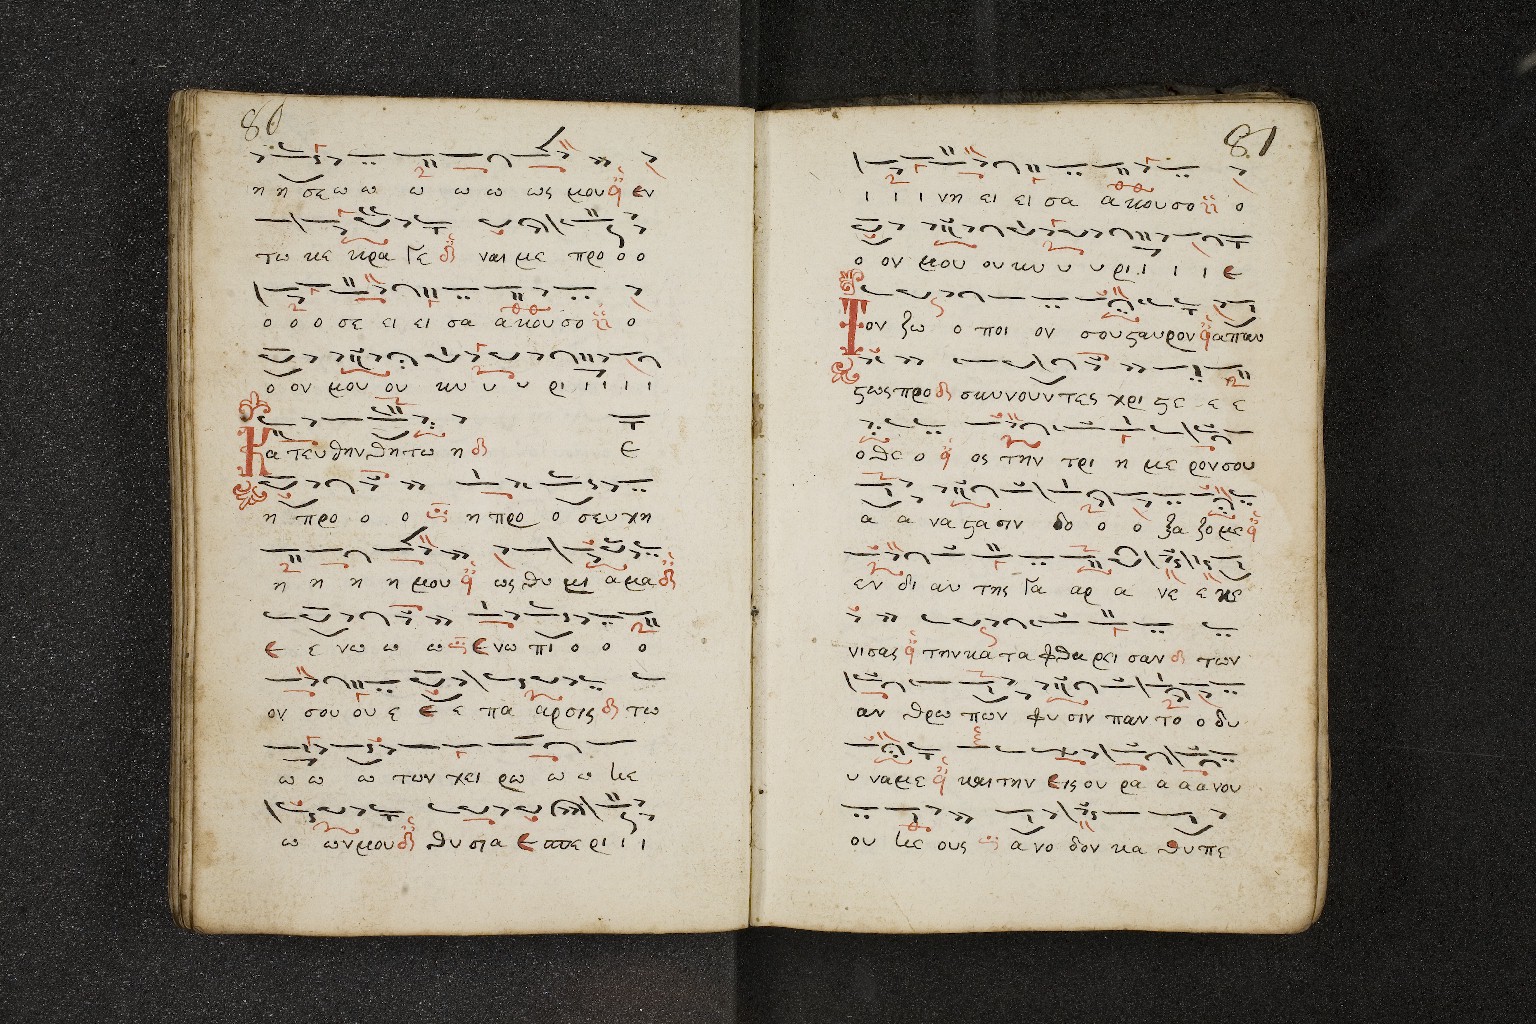 80
η η σε ω ω ω ω ω ως μου εν
τω κε κρα γε ναι με προ ο ο
ο ο ο σε ει ει σα α κου σο ο
ο ον μου ου κυ υ υ ρι ι ι ι
Κα τευ θην θη τω η ε
η προ ο ο η προ ο σευ χη
η η η η μου ως θυ μι α μα
ε ε νω ω ω ε νω πι ο ο ο
ον σου ου ε ε ε πα αρ σις τω
ω ω ω των χει ρω ω ω
ω ων μου θυ σι α ε σπε ρι ι ι
81
ι ι ι νη ει ει σα α κου σο ο
ο ον μου ου κυ υ υ ρι ι ι ι ε
Τον ζω ο ποι ον σου ϛαυρον απαυ
ϛως προ σκυ νουν τες χρι ϛε ε ε
ο θε ο ος την τρι η με ρον σου
α α να ϛα σιν δο ο ο ξα ζο με
εν δι αυ της γα αρ α νε ε κε
νι σας την κα τα φθα ρει σαν των
αν θρω πων φυ σιν παν το ο δυ
υ να με και την εις ου ρα α α α νου
ου ους α νο δον κα θυ πε